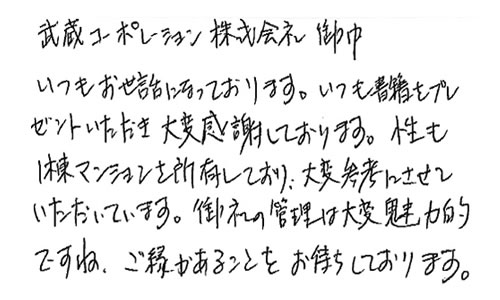 武蔵コーポレーション 株式会社 御中
いつもお世話になっております。いつも書籍をプレ
ゼントいただき 大変感謝しております。私も
1棟マンションを所有しており、大変参考にさせて
いただいています。御社の管理は大変魅力的
ですね、ご縁があることを お待ちしております。